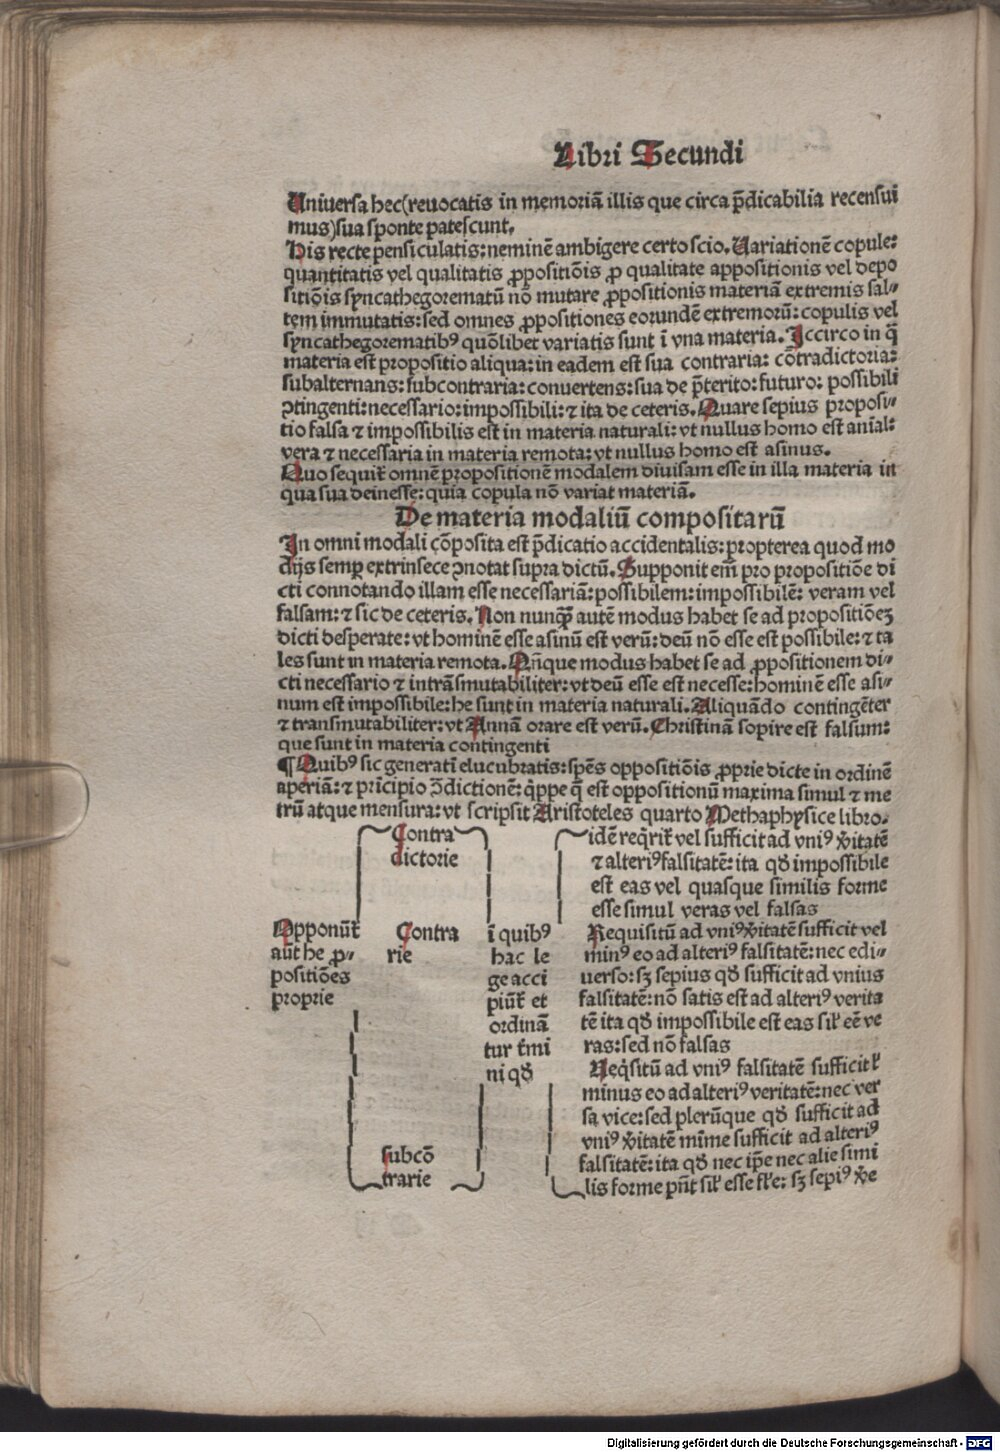 Libri Secundi
Uniuersa hec(reuocatis in memoriā illis que circa p̄dicabilia recensui
mus)sua sponte patescunt.
His recte pensiculatis:neminē ambigere certo scio.Uariationē copule:
quantitatis vel qualitatis ꝓpositiōis ꝓ qualitate appositionis vel depo
sitiōis syncathegorematū nō mutare ꝓpositionis materiā extremis sal⸗
tem immutatis:sed omnes ꝓpositiones eorundē extremorū:copulis vel
syncathegorematibꝰ quōlibet variatis sunt ī vna materia.Iccirco in q̄
materia est propositio aliqua:in eadem est sua contraria:cōtradictoria:
subalternans:subcontraria:conuertens:sua de p̄terito:futuro:possibili
ꝯtingenti:necessario:impossibili:⁊ ita de ceteris.Quare sepius proposi⸗
tio falsa ⁊ impossibilis est in materia naturali:vt nullus homo est anīal:
vera ⁊ necessaria in materia remota:vt nullus homo est asinus.
Quo sequit᷑ omnē propositionē modalem diuisam esse in illa materia in
qua sua deinesse:quia copula nō variat materiā.
De materia modaliū compositarū
In omni modali cōposita est p̄dicatio accidentalis:propterea quod mo
dijs semꝑ extrinsece ꝯnotat supra dictū.Supponit em̄ pro propositiōe di
cti connotando illam esse necessariā:possibilem:impossibilē:veram vel
falsam:⁊ sic de ceteris.Non nunqꝫ autē modus habet se ad propositiōeꝫ
dicti desperate:vt hominē esse asinū est verū:deū nō esse est possibile:⁊ ta
les sunt in materia remota.Qn̄que modus habet se ad ꝓpositionem di⸗
cti necessario ⁊ intrāsmutabiliter:vt deū esse est necesse:hominē esse asi⸗
num est impossibile:he sunt in materia naturali.Aliquādo contingēter
⁊ transmutabiliter:vt Annā orare est verū.Christinā sopire est falsum:
que sunt in materia contingenti
¶Quibꝰ sic generatī elucubratis:spēs oppositiōis ꝓprie dicte in ordinē
aperiā:⁊ prīcipio ꝯ̄dictionē:q̇ppe q̄ est oppositionū maxima simul ⁊ me
trū atque mensura:vt scripsit Aristoteles quarto Methaphysice libro.
Opponūt᷑
aūt he ꝓ⸗
positiōes
proprie
Contra
dictorie
Contra
rie
subcō
trarie
ī quibꝰ
hac le
ge acci
piūt᷑ et
ordinā
tur t᷑mi
ni qđ
idē req̇rit᷑ vel sufficit ad vniꝰ v̄itatē
⁊ alteriꝰ falsitatē:ita qđ impossibile
est eas vel quasque similis forme
esse simul veras vel falsas
Requisitū ad vniꝰ v̄itatē sufficit vel
minꝰ eo ad alteriꝰ falsitatē:nec edi⸗
uerso:sꝫ sepius qđ sufficit ad vnius
falsitatē:nō satis est ad alteriꝰ verita
tē ita qđ impossibile est eas sil' eē ve
ras:sed nō falsas
Req̇sitū ad vniꝰ falsitatē sufficit l'
minus eo ad alteriꝰ veritatē:nec ver
sa vice:sed plerūque qđ sufficit ad
vniꝰ v̄itatē mīme sufficit ad alteriꝰ
falsitatē:ita qđ nec ip̄e nec alie simi
lis forme pn̄t sil' esse fl'e:sꝫ sepiꝰ v̄e
Digitalisierung gefördert durch die Deutsche Forschungsgemeinschaft - DFG